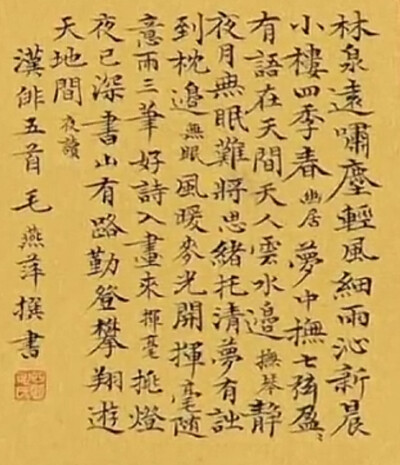 林泉遠嘯塵輕風細雨沁新晨
小樓四季春幽居夢中撫七弦盈〻
有語在天間天人雲水邊撫琴靜
夜月無眠難將思緒托清夢有詘
到枕邊無眠風暖麥光開揮毫隨
意兩三筆好詩入畫來揮毫挑燈
夜已深書山有路勤登攀翔遊
天地間夜讀
漢俳五首毛燕萍撰書